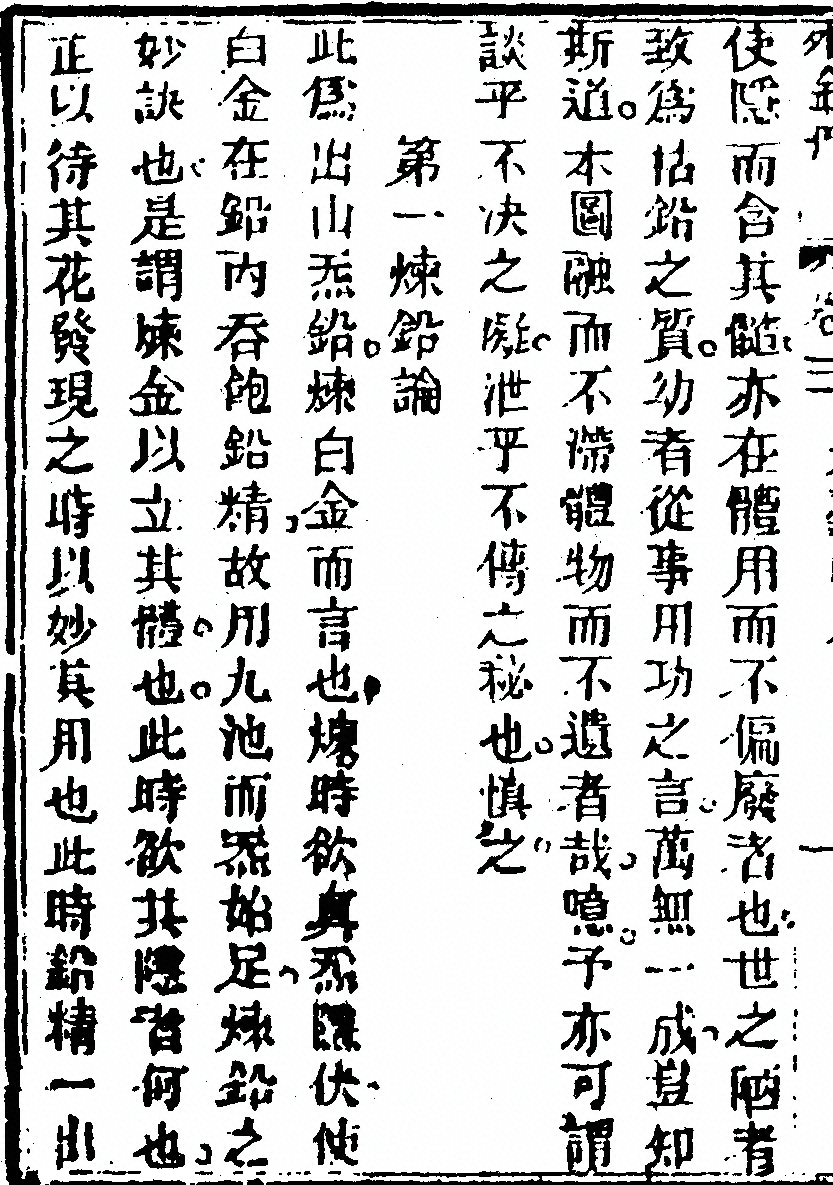 使隱而含其髓亦在體用而不偏廢者也世之陋者
致為枯鉛之質幼者從事用功之言萬無一成豈知
斯道本圖融而不滯體物而不遺者哉噫予亦可謂
談乎不決之疑泄乎不傳之秘也慎之
第一煉鉛論
此為出山炁鉛煉白金而言也煉時欲真炁隱伏使
白金在鉛內吞飽鉛精故用九池而炁始足煉鉛之
妙訣也是謂煉金以立其體也此時欲其隱者何也
正以待其花發現之時以妙其用也此時鉛精一出